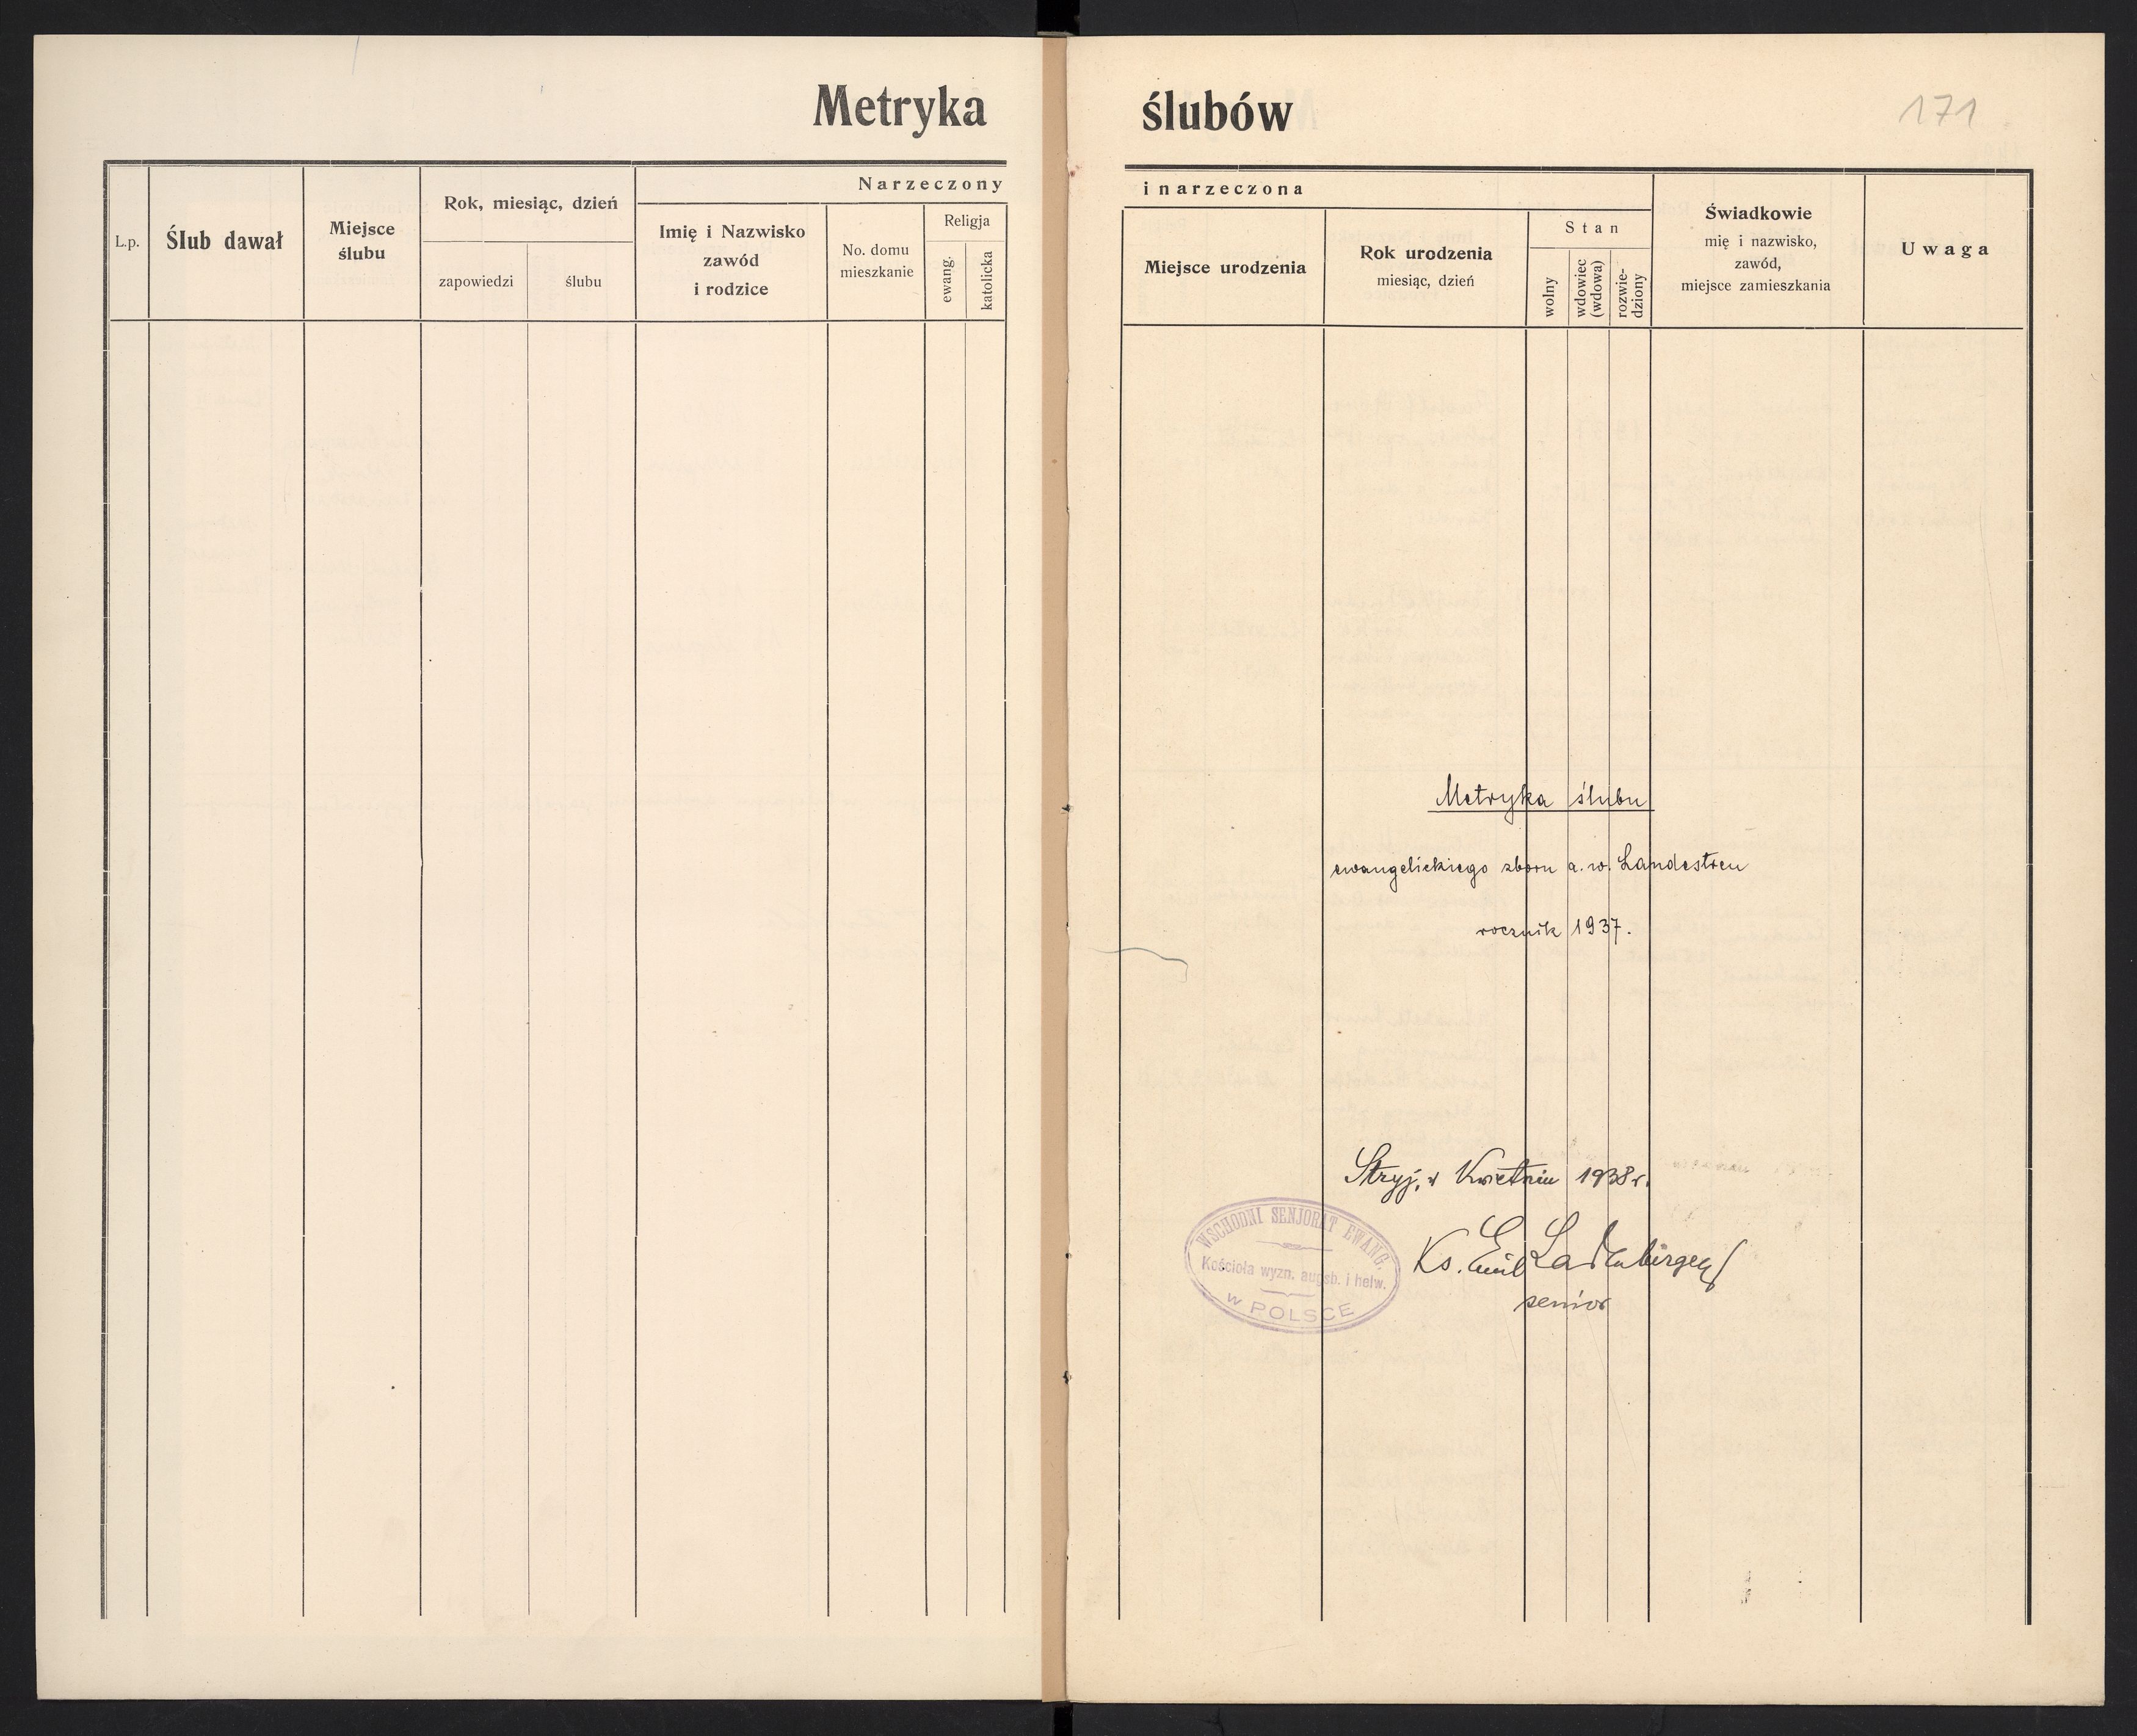 Metryka ślubów
171
Narzeczony
i narzeczona
L.p.
Ślub dawał
Miejsce
ślubu
Rok, miesiąc, dzień
zapowiedzi
ślubu
Imię i Nazwisko
zawód
i rodzice
No. domu
mieszkanie
Religja
ewang.
katolicka
Miejsce urodzenia
Rok urodzenia
miesiąc, dzień
Stan
wolny
wdowiec
(wdowa)
rozwie-
dziony
Świadkowie
mię i nazwisko,
zawód,
miejsce zamieszkania
Uwaga
Metryka ślubu
ewangelickiego zboru a. w. Landestreu
rocznik 1937.
Stryj, w Kwietniu 1938 r.
WSCHODNI SENJORAT EWANG.
Kościoła wyzn. augsb. i helw.
w POLSCE
Ks. Emil Ladenberger
senior